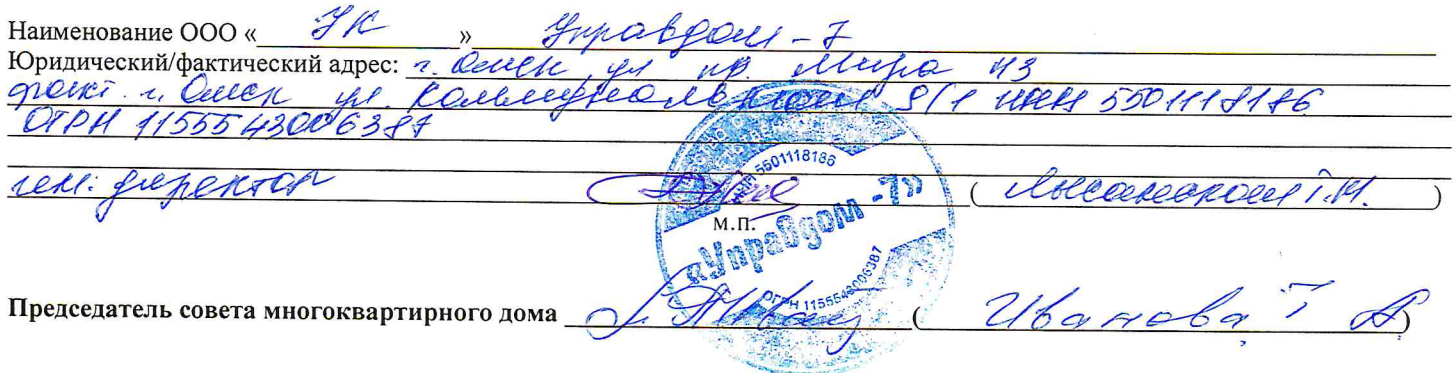 Наименование ООО « УК » Управдом-7
Юридический/фактический адрес: г. Омск, ул пр. Мира 43
факт. г. Омск ул. Коммунальная 9/1 ИНН 5501118186
ОГРН 1155543006387
ген. директор ( Т.М. )
ИНН 5501118186
М.П.
«Управдом -7»
ОГРН 1155543006387
Председатель совета многоквартирного дома ( Иванова Т А )